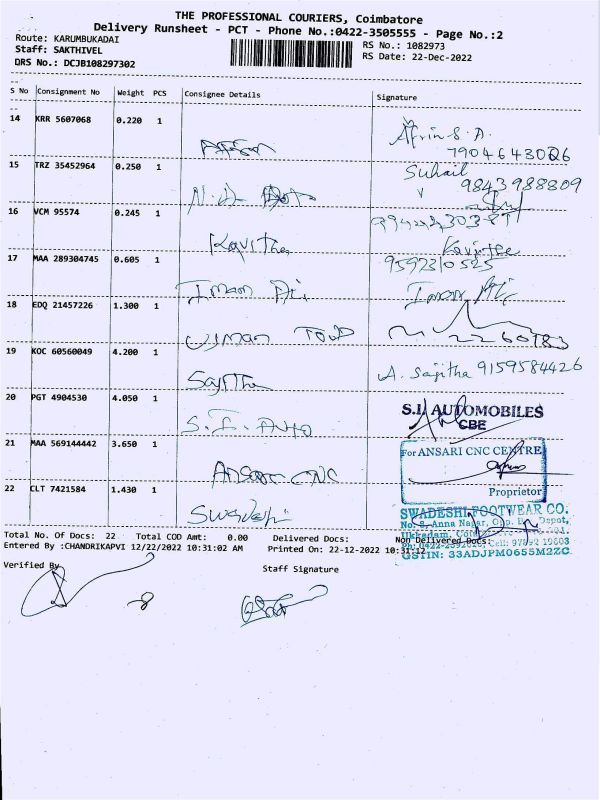 THE PROFESSIONAL COURIERS, Coimbatore
Delivery Runsheet - PCT - Phone No.:0422-3505555 - Page No.:2
Route: KARUMBUKADAI
RS No.: 1082973
Staff: SAKTHIVEL
RS Date: 22-Dec-2022
DRS No.: DCJB108297302
S No Consignment No Weight PCS Consignee Details Signature
14 KRR 5607068 0.220 1
Afrin S. A.
7904643026
15 TRZ 35452964 0.250 1
Suhail
9843988809
16 VCM 95574 0.245 1
Kavitha
17 MAA 289304745 0.605 1
9592310525
Iman Ali
18 EDQ 21457226 1.300 1
19 KOC 60560049 4.200 1
Sajitha
A. Sajitha 9159584426
20 PGT 4904530 4.050 1
S.I. Auto
S.I. AUTOMOBILES
CBE
21 MAA 569144442 3.650 1
Ansari CNC
For ANSARI CNC CENTRE
Proprietor
22 CLT 7421584 1.430 1
Swadeshi
SWADESHI FOOTWEAR CO.
No. Anna Nagar, Opp. Depot,
Ukkadam,
GSTIN: 33ADJPM0655M2ZC
Total No. Of Docs: 22 Total COD Amt: 0.00 Delivered Docs: Non Delivered Docs:
Entered By :CHANDRIKAPVI 12/22/2022 10:31:02 AM Printed On: 22-12-2022
Verified By
Staff Signature